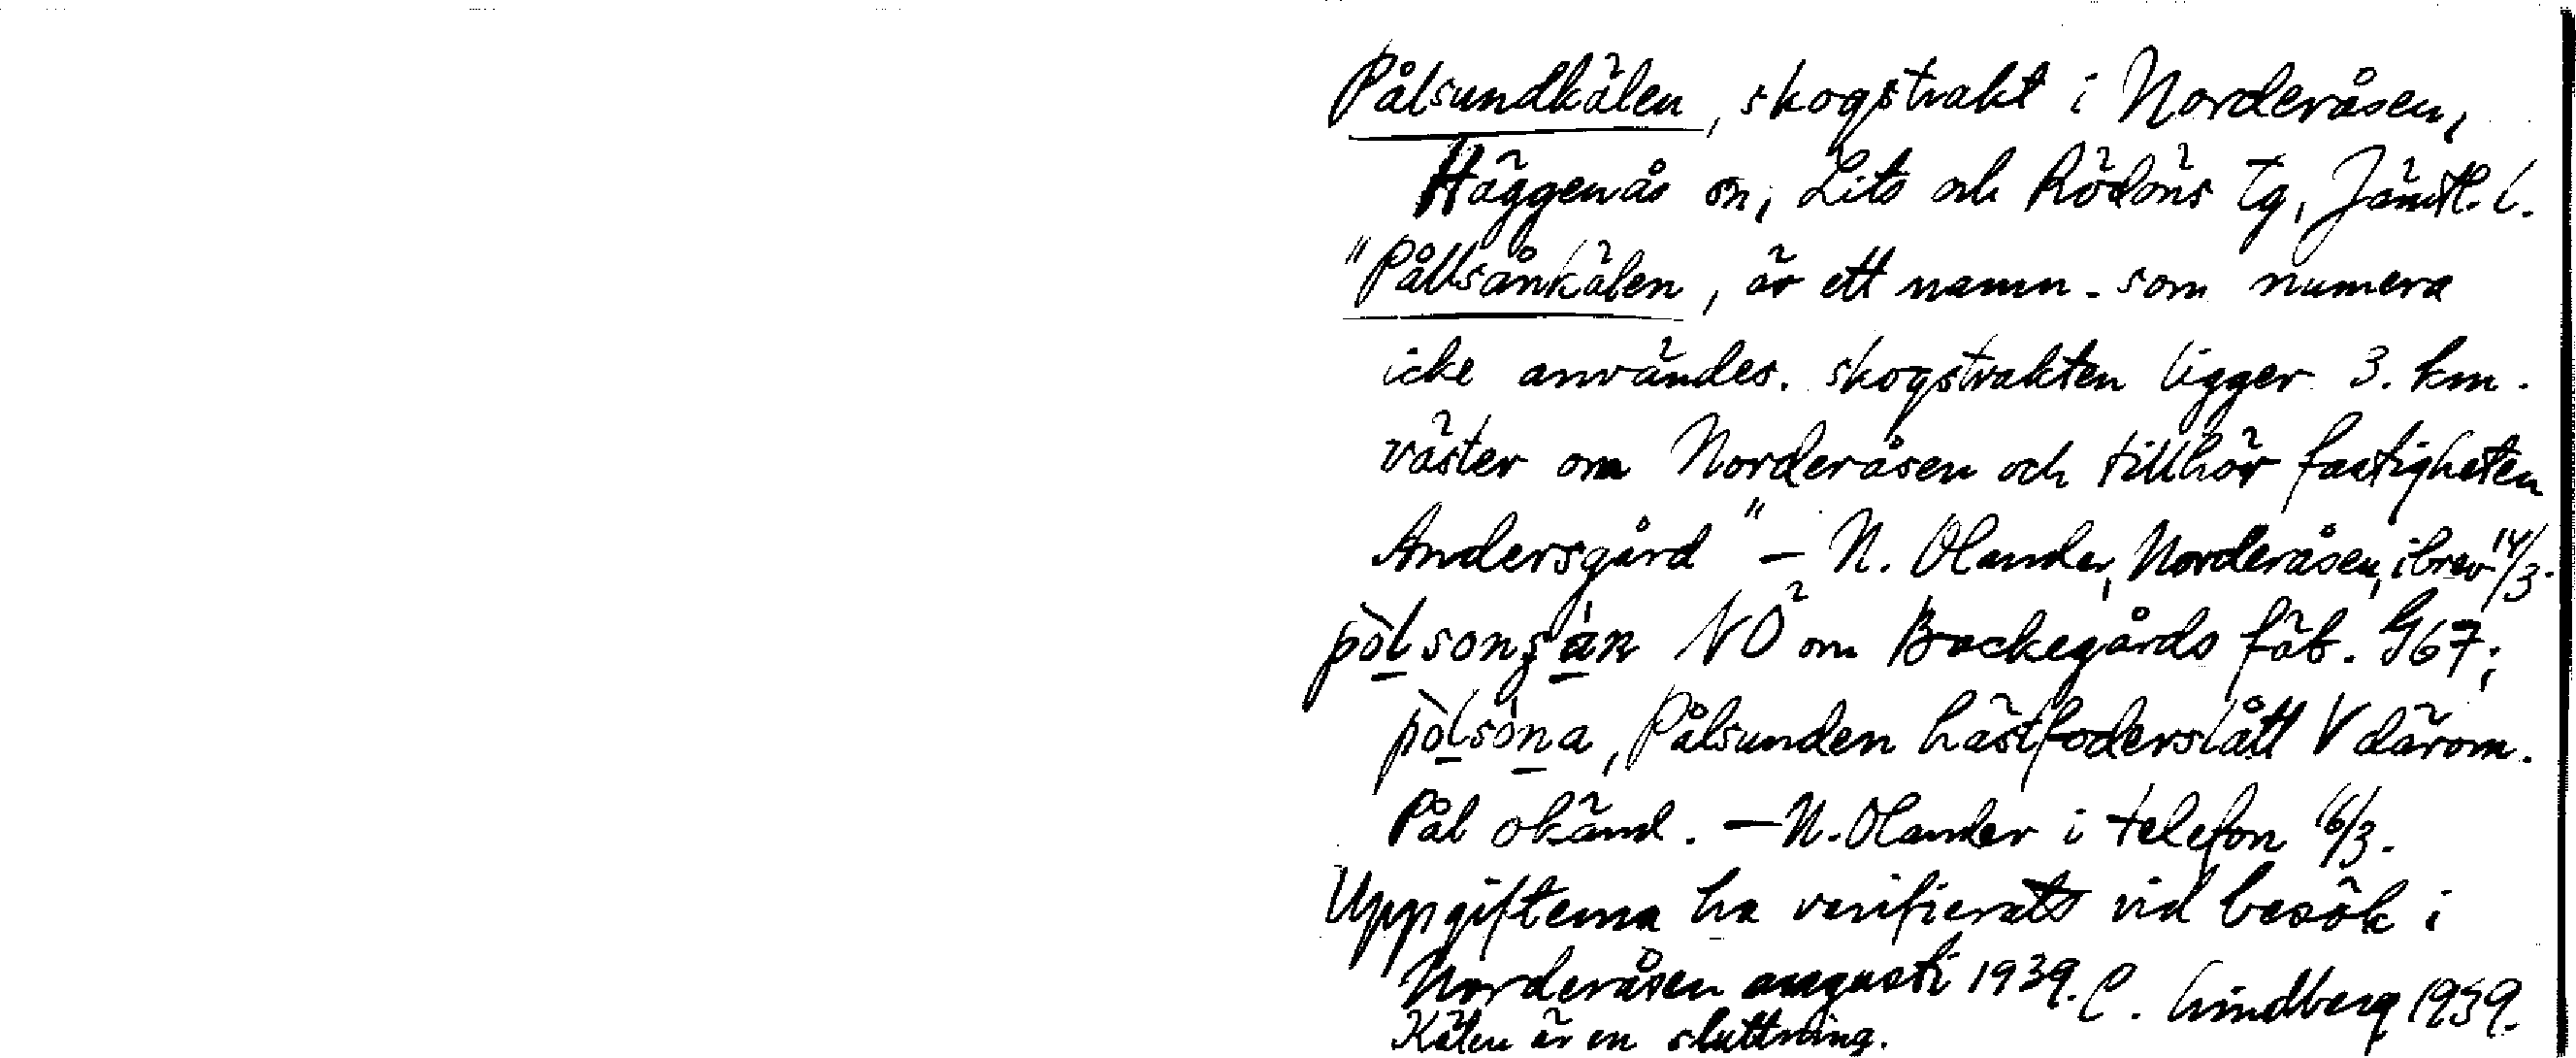 Pålsundkälen, skogstrakt i Norderåsen,
Häggenås sn, Lits och Rödöns tg, Jämtl. l.
"Pållsånkälen, är ett namn - som numera
icke användes. skogstrakten ligger 3. km.
väster om Norderåsen och tillhör fastigheten
Andersgård" – N. Olander, Norderåsen, i brev 14/3.
NÖ om Backegårds fäb. G67;
Pålsunden hästfoderslått V därom.
Pål okänd. – N. Olander i telefon 16/3.
Uppgifterna ha verifierats vid besök i
Norderåsen augusti 1939. C. Lindberg 1939.
Kälen är en sluttning.